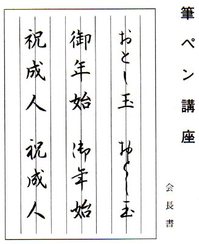 筆ペン講座
会長書
おとし玉 おとし玉
御年始 御年始
祝成人 祝成人